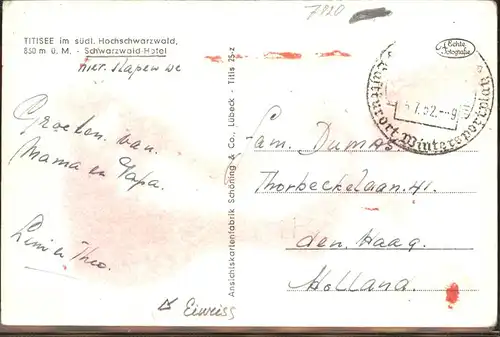 7820
TITISEE im südl. Hochschwarzwald,
850 m ü. M. - Schwarzwald-Hotel
hier slapen we
Echte
Fotografie
Groeten van
Mama en Papa.
Leni en Theo.
Ansichtskartenfabrik Schöning & Co., Lübeck - Titis 25-z
7.52.--9
Kurort Wintersportplatz
Fam. Dumas
Thorbeckelaan. 41.
den Haag.
Holland.
Eiweiss